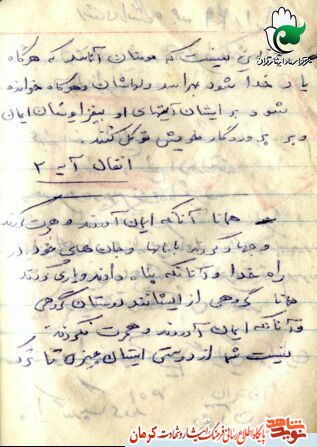 جز این نیست که مومنان آنانند که هرگاه
یاد خدا شود بهراسد دلهاشان و هرگاه خوانده
شود بر ایشان آیتهای او بیفزایدشان ایمان
و بر پروردگار خویش توکل کنند.
انفال آیه ۲
همانا آنانکه ایمان آوردند و هجرت کردند
و جهاد کردند با مالها و جان های خود در
راه خدا و آنانکه پناه دادند و یاری کردند
همانا گروهی از ایشانند دوستان گروهی
و آنانکه ایمان آوردند و هجرت نکردند
نیست شما از دوستی ایشان چیزی تا
نوید شاهد
پایگاه اطلاع رسانی فرهنگ ایثار و شهادت کرمان